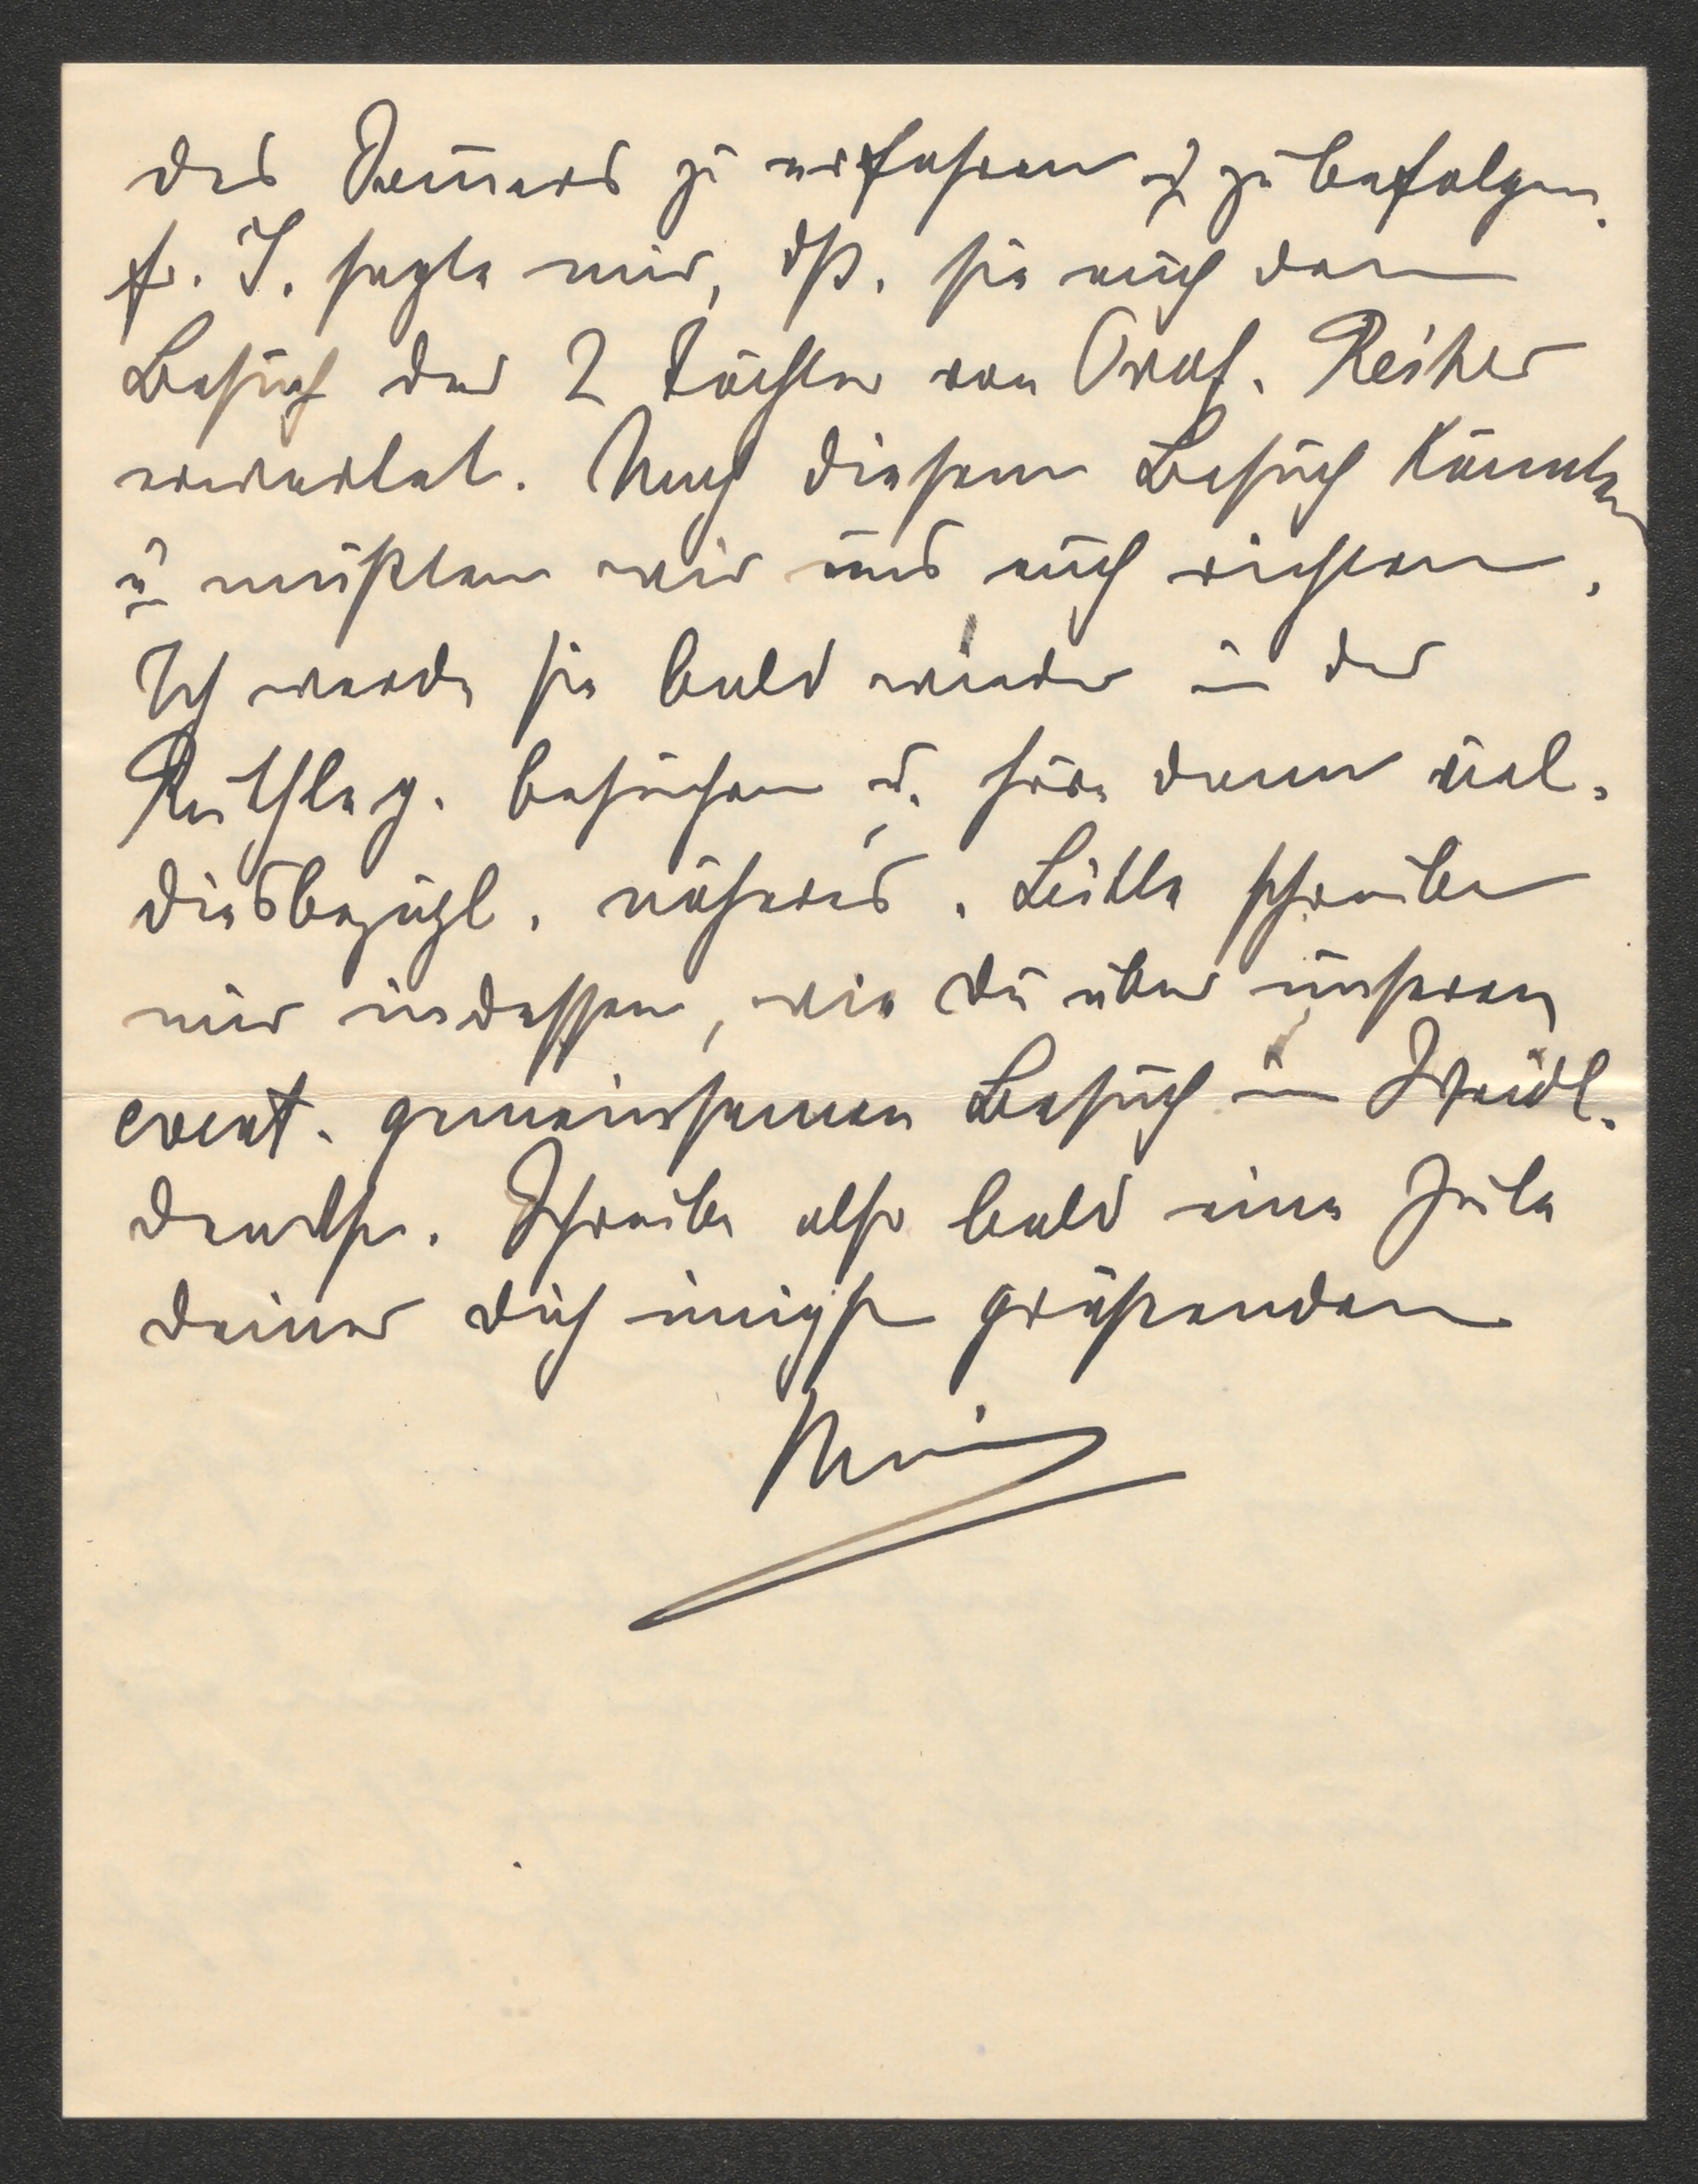 des Raumes zu erfahren u. zu befolgen.
Fr. J. sagte mir, dß. sie auch den
Besuch der 2 Töchter von Prof. Reiher
erwartet. Nach diesem Besuch könnten
u. müßten wir uns auch richten.
Ich werde sie bald wieder in der
besuchen u. höre dann viel.
diesbezügl. näheres. Bitte schreibe
mir indessen, wie Du über unseren
event. gemeinsamen Besuch in Weidl.
denkst. Schreibe also bald eine Zeile
Deiner Dich innigst grüßenden